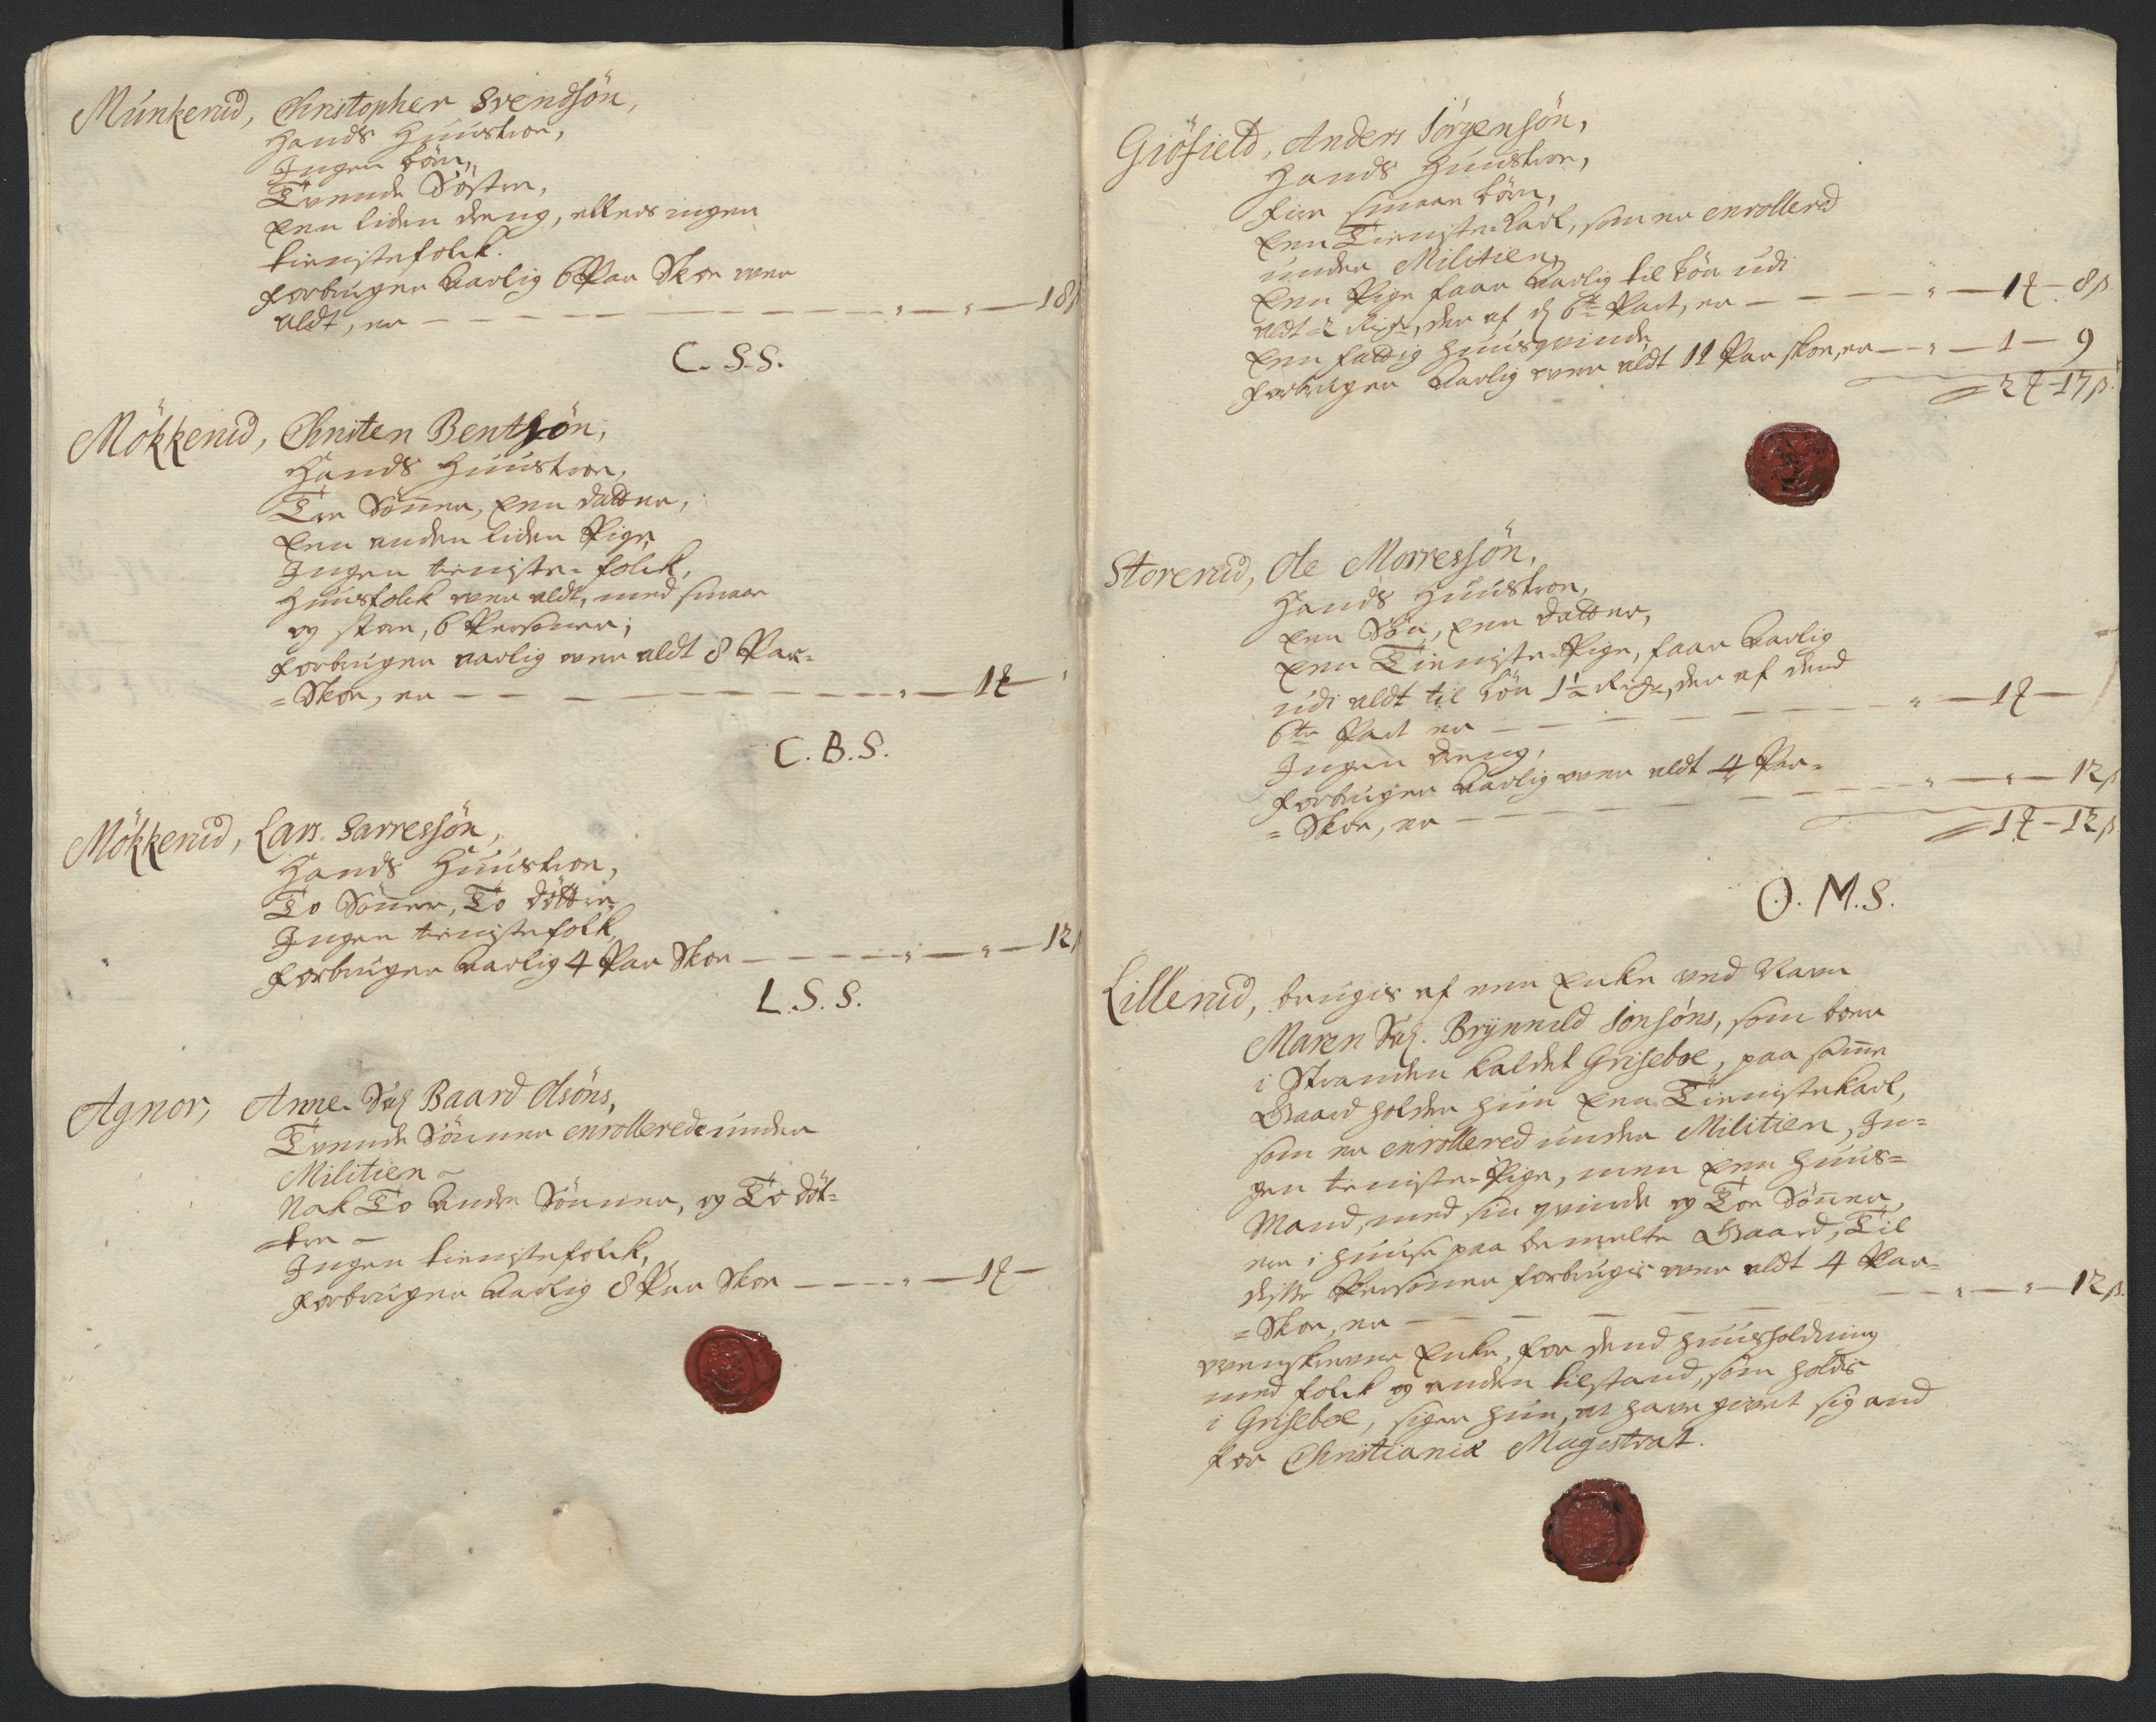 Munkerud, Christopher Svendsön,
Hands Huustroe,
Ingen börn,
Tvende Söstre,
Een liden dreng, ellers ingen
tienistefolck.
Forbruger Aarlig 6 Par Skoe over
aldt, er — — — — — — — „ — „ — 18 ß
C. S. S.
Mökkerud, Christen Bentsön,
Hands Huustroe,
Tre Sönner, Een datter,
Een anden liden Pige,
Ingen tieniste-folck,
Huusfolck over aldt, med smaae
og store, 6 Personer;
Forbruger aarlig over aldt 8 Par-
=Skoe, er — — — — — — — „ — 1 ₰ —
C. B. S.
Mökkerud, Lars Sarresön,
Hands Huustroe,
To Sönner, To döttre,
Ingen tienistefolk,
Forbruger Aarlig 4 Par Skoe — — — — „ — „ — 12 ß
L. S. S.
Agnor, Anne Sal. Baard Olsöns,
Tvende Sönner enrollerede under
Militien —
Nok To Andre Sönner, og To döt=
=tre —
Ingen tienistefolck,
Forbruger Aarlig 8 Par Skoe — — — „ — 1 ₰ —
Giöfield, Anders Jörgensön,
Hands Huustroe,
Fire smaae börn,
Een Tieniste-Karl, som er enrollered
under Militien,
Een Pige faar Aarlig til lön udi
aldt 2 Rixdr, der af d. 6te Part, er — — — „ — 1 ₰ — 8 ß
Een fattig Huusqvinde,
Forbruger Aarlig over aldt 11 Par skoe, er — „ — 1 — 9
2 ₰ — 17 ß
Storerud, Ole Morresön,
Hands Huustroe,
Een Sön, Een datter,
Een Tieniste-Pige, faar Aarlig
udi aldt til lön 1½ Rixdr, der af dend
6te Part er — — — — — „ — 1 ₰ —
Ingen dreng,
Forbruger Aarlig over aldt 4 Par=
=Skoe, er — — — — — — „ — „ — 12 ß
1 ₰ — 12 ß
O. M. S.
Lillerud, brugis af een Enke ved Navn
Maren Sal. Brynnild Jonsöns, som boer
i Stranden kaldet Griseboe, paa samme
Gaard holder hun Een Tienistekarl,
som er enrollered under Militien, In=
gen tieniste-Pige, men Een Huus=
Mand, med sin qvinde og Toe Sönner,
ere i Huuse paa bemelte Gaard, Til
disse Personer forbrugis over aldt 4 Par=
=Skoe, er — — — — — — „ — „ — 12 ß
ovenskrevne Enke, for dend huusholdning
med folck og anden tilstand, som holdes
i Griseboe, siger hun, at have givet sig and
for Christiania Magistrat.